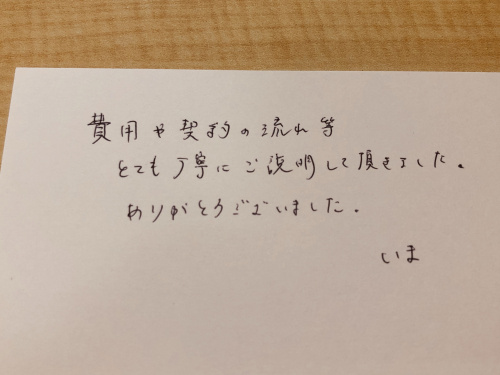 費用や契約の流れ等
とても丁寧にご説明して頂きました。
ありがとうございました。
いま